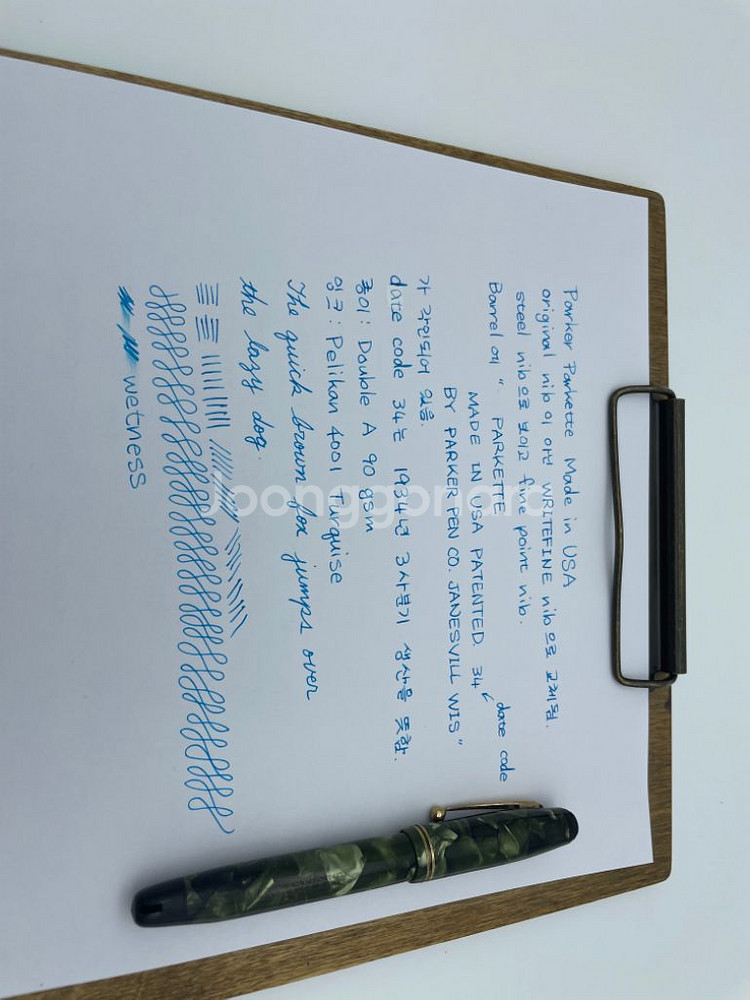 Parker Parkette Made in USA
original nib이 아닌 WRITEFINE nib으로 교체됨.
steel nib으로 보이고 fine point nib.
Barrel에 " PARKETTE
MADE IN USA PATENTED. 34
date code
BY PARKER PEN CO. JANESVILL WIS "
가 각인되어 있음.
date code 34는 1934년 3사분기 생산을 뜻함.
종이: Double A 90 gsm
잉크: Pelikan 4001 Turquise
The quick brown fox jumps over
the lazy dog.
wetness
Joonggonara